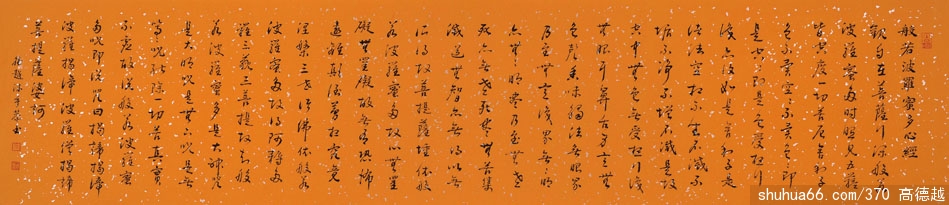 般若波羅蜜多心經
觀自在菩薩行深般若
波羅蜜多時照見五蘊
皆空度一切苦厄舍利子
色不異空空不異色色即
是空空即是色受想行
識亦復如是舍利子是
諸法空相不生不滅不
垢不淨不增不減是故
空中無色無受想行識
無眼耳鼻舌身意無
色聲香味觸法無眼界
乃至無意識界無無明
亦無無明盡乃至無老
死亦無老死盡無苦集
滅道無智亦無得以無
所得故菩提薩埵依般
若波羅蜜多故心無罣
礙無罣礙故無有恐怖
遠離顛倒夢想究竟
涅槃三世諸佛依般若
波羅蜜多故得阿耨多
羅三藐三菩提故知般
若波羅蜜多是大神咒
是大明咒是無上咒是無
等等咒能除一切苦真實
不虛故說般若波羅蜜
多咒即說咒曰揭諦揭諦
波羅揭諦波羅僧揭諦
菩提薩婆訶
shuhua66.com/370 高德越